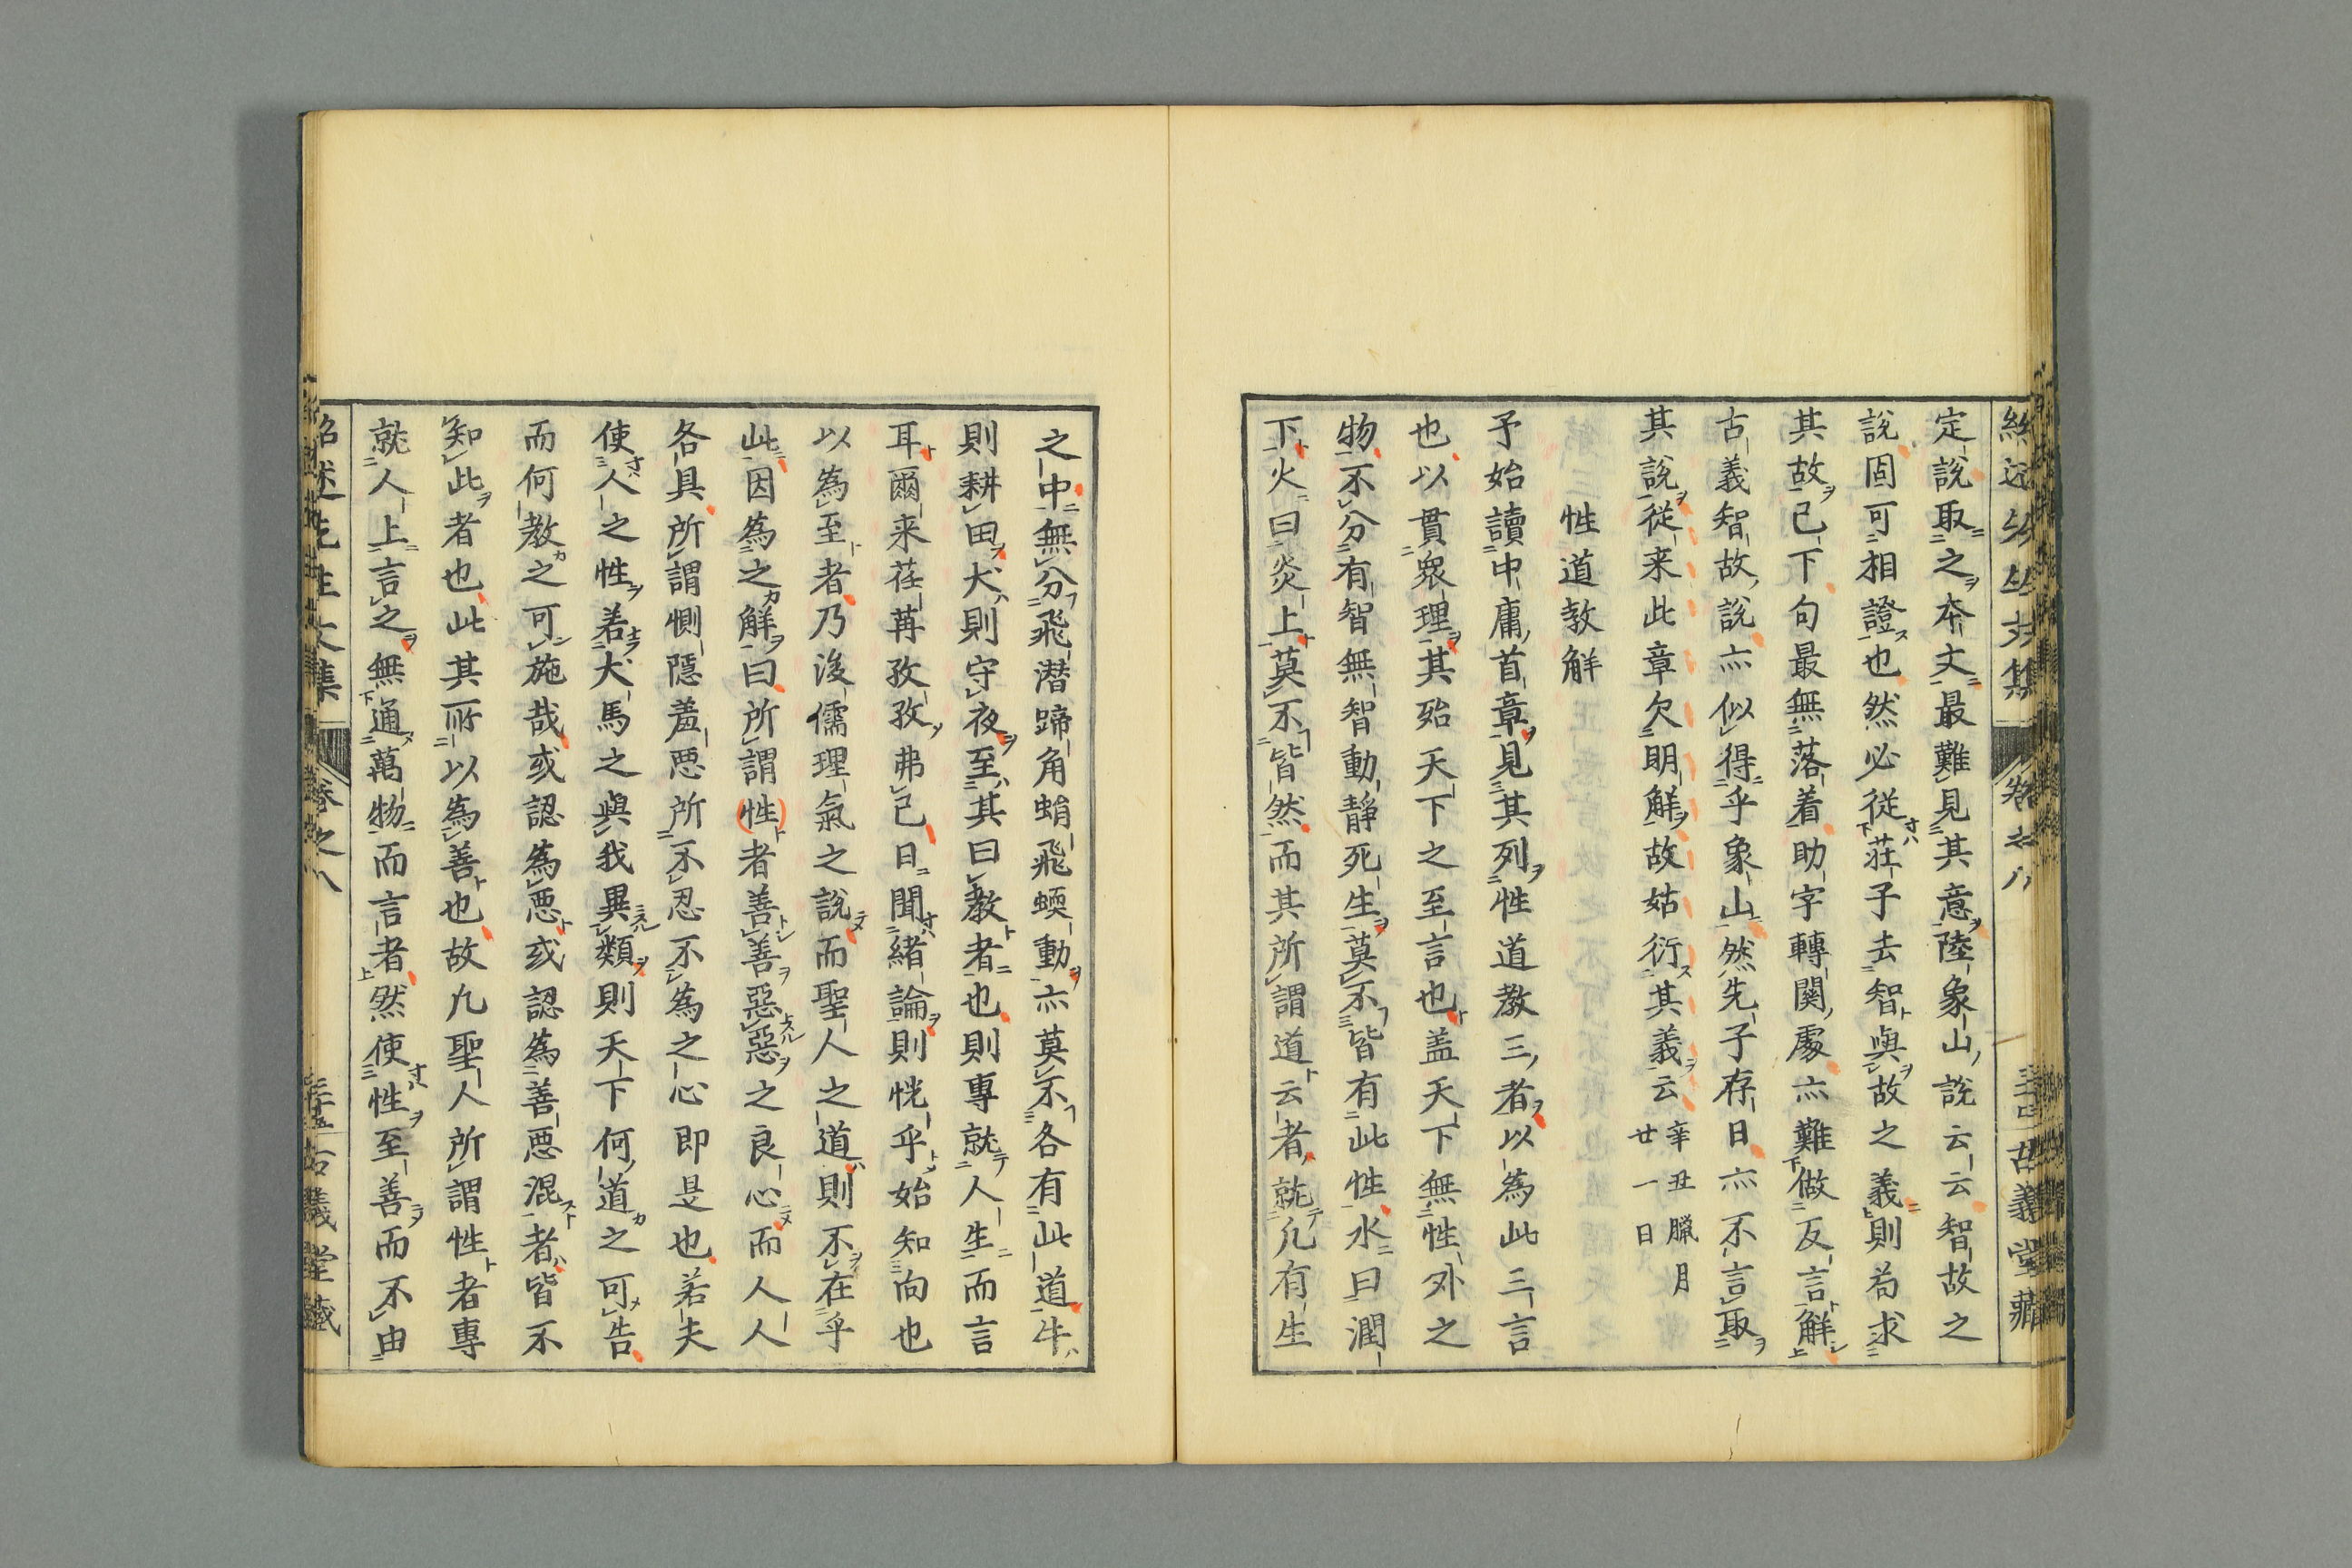 定說取之本文最難見其意陸象山說云云智故之
說固可相證也然必從莊子去智與故之義則苟求
其故已下句最無落着助字轉關處亦難做反言解
古義智故說亦似得乎象山然先子存日亦不言取
其說從来此章欠明解故姑衍其義云辛丑臘月廿一日
性道教解
予始讀中庸首章見其列性道教三者以為此三言
也以貫衆理其殆天下之至言也盖天下無性外之
物不分有智無智動靜死生莫不皆有此性水曰潤
下火曰炎上莫不皆然而其所謂道云者就凡有生
之中無分飛潛蹄角蛸飛蝡動亦莫不各有此道牛
則耕田犬則守夜至其曰教者也則專就人生而言
耳爾来荏苒孜孜弗已日聞緒論則恍乎始知向也
以為至者乃後儒理氣之說而聖人之道則不在乎
此因為之解曰所謂性者善善惡惡之良心而人人
各具所謂惻隱羞惡所不忍不為之心即是也若夫
使人之性若犬馬之與我異類則天下何道之可告
而何教之可施哉或認為悪或認為善悪混者皆不
知此者也此其所以為善也故凡聖人所謂性者專
就人上言之無通萬物而言者然使性至善而不由
紹述先生文集
卷之八
古義堂藏